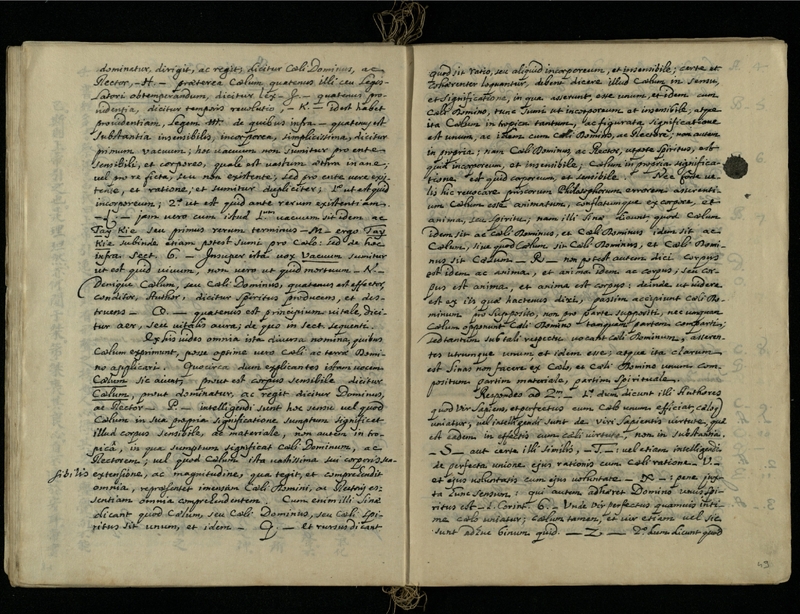 dominatur, dirigit, ac regit, dicitur Cæli Dominus, ac
Rector, — H. — præterea Cælum quatenus illi ceu Legis-
latori obtemperandum, dicitur Lex — J. — quatenus pro-
videntia, dicitur temporis revolutio — K. — idest habet
providentiam, Legem &c. de quibus infra — quatenus est
substantia insensibilis, incorporea, simplicissima, dicitur
primum vacuum; hoc vacuum non sumitur pro ente
sensibili, et corporeo, quale est vastum æthra inane,
vel pro re ficta, seu non existente; sed pro ente vere exis-
tente, et ratione; et sumitur dupliciter; 1.º ut est quid
incorporeum; 2.º ut est quid ante rerum existentiam.
— L — jam vero cum istud 1.um vacuum sit idem ac
Tay Kie seu primus rerum terminus — M — ergo Tay
Kie subinde etiam potest sumi pro Cælo: sed de hoc
infra Sect. 6. — Insuper ista vox Vacuum sumitur
ut est quid vivum, non vero ut quid mortuum — N. —
Denique Cælum, seu Cæli Dominus, quatenus est effector,
conditor, Author, dicitur Spiritus producens, et des-
truens — O. — quatenus est principium vitale, dici-
tur aer, seu vitalis aura; de quo in sect. sequenti.
Ex his video omnia ista diversa nomina, quibus
Cælum exprimunt, posse optime vero Cæli ac terræ Domi-
no applicari. Quocirca dum explicantes istam vocem
Cælum sic aiunt; prout est corpus sensibile dicitur
Cælum, prout dominatur, ac regit dicitur Dominus,
ac Rector — P. — intelligendi sunt hoc sensu vel quod
Cælum in sua propria significatione sumptum significat
illud corpus sensibile, ac materiale, non autem in tro-
pica, in qua sumptum significat Cæli Dominum, ac
Rectorem; vel quod Cælum ista vastissima sui corporis sen-
sibilis extensione, ac magnitudine, qua tegit, et comprehendit
omnia, repræsentet imensam Cæli Domini, ac Rectoris es-
sentiam omnia comprehendentem. Cum enim illi Sinæ
dicant quod Cælum, seu Cæli Dominus, seu Cæli Spi-
ritus sit unum, et idem — Q; — et rursus dicant
quod sit ratio, seu aliquid incorporeum, et insensibile; certe ut
cohærenter loquantur, debent dicere illud Cælum in sensu,
et significatione, in qua asserunt esse unum, et idem cum
Cæli Domino, tunc sumi ut incorporeum et insensibile, atque
ita Cælum in tropica tantum, ac figurata significatione
est unum, ac idem cum Cæli Domino, ac Rectore; non autem
in propria; nam Cæli Dominus ac Rector, utpote Spiritus, est
quid incorporeum, et insensibile; Cælum in propria significa-
tione est quid corporeum, et sensibile. Nec forte ve-
lis hic revocare priscorum Philosophorum errorem asserenti-
um Cælum esse animatum, conflatumque ex corpore, et
anima, seu Spiritu, nam illi Sinæ aiunt; quod Cælum
idem sit ac Cæli Dominus, et Cæli Dominus idem sit ac
Cælum, sive quod Cælum sit Cæli Dominus, et Cæli Domi-
nus sit Cælum — R — non potest autem dici corpus
est idem ac anima, et anima idem ac corpus, seu cor-
pus est anima, et anima est corpus: deinde ut videre
est ex iis quæ hactenus dixi, passim accipiunt Cæli Do-
minum pro supposito, non pro parte suppositi, nec unquam
Cælum opponunt Cæli Domino tanquam partem comparti;
sed tantum sub tali respectu vocant Cæli Dominum, asseren-
tes utrunque unum et idem esse: atque ita clarum
est Sinas non facere ex Cælo, et Cæli Domino unum com-
positum partim materiale, partim Spirituale.
Respondeo ad 2.um 1.º dum dicunt illi Authores
quod Vir Sapiens, et perfectus cum Cælo unum efficiat, cælo
uniatur; vel intelligendi sunt de Viri Sapientis virtute, quæ
est eadem in effectis cum cæli virtute, non in substantia.
— S — aut certe illi similis, — T —: vel etiam intelligendi
de perfecta unione ejus rationis cum Cæli ratione — V. —
et ejus voluntatis cum ejus voluntate. — X — : pene jux-
ta hunc sensum: qui autem adhæret Domino unus spi-
ritus est — 1. Corint. 6. — Unde Vir perfectus quamvis inti-
me cælo uniatur; cælum tamen, et vir etiam vel sic
sunt adhuc binum quid: — Z — 2.º dum dicunt quod
49